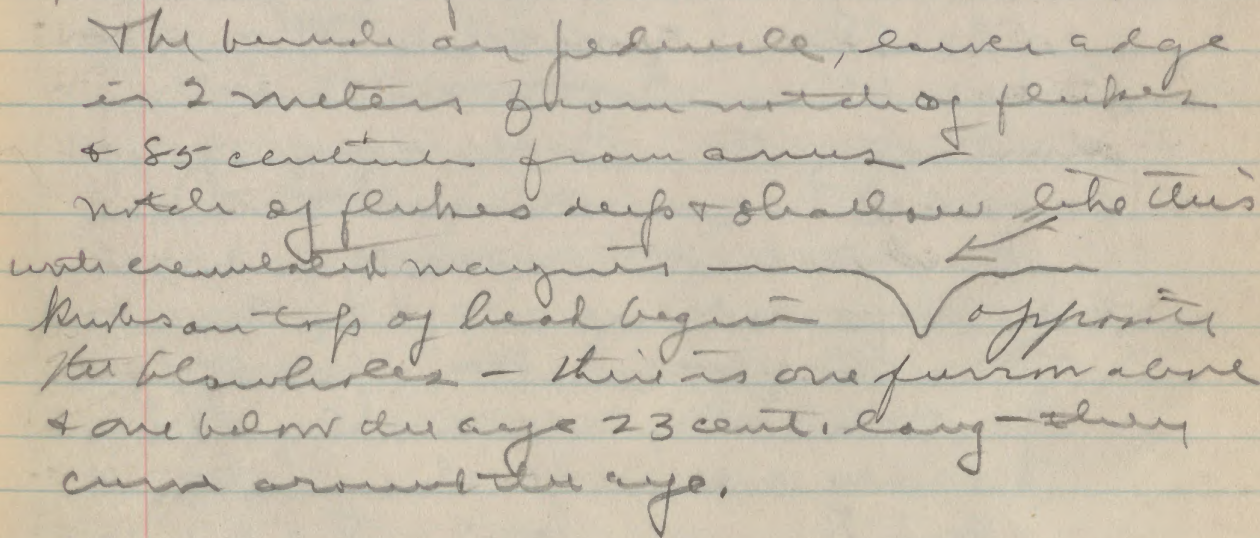 The bunch on peduncle, lower edge
is 2 meters from notch of flukes
& 85 centim from anus –
notch of flukes deep & shallow like this
with crenulated margins
Knobs on top of head begin opposite
the blowholes – there is one furrow above
& one below the eye 23 cent. long – they
curve around the eye.